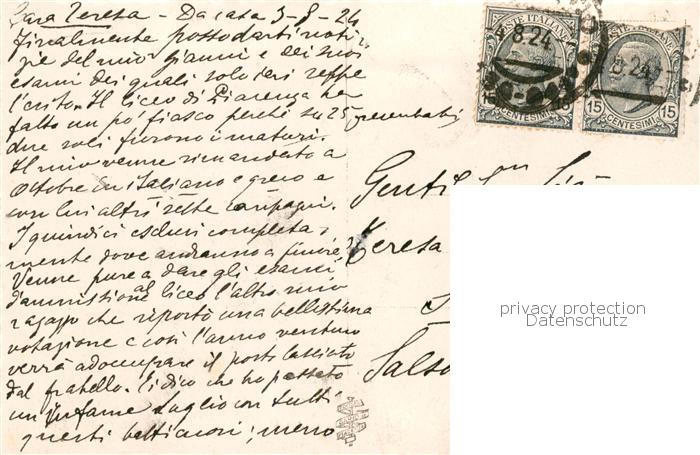 Cara Teresa - Da casa 3-8-24
Finalmente posso darti noti
zie del mio Gianni e dei suoi
esami dei quali solo ieri seppe
l'esito. Il liceo di Piacenza ha
fatto un po' fiasco perché su 25 presentati
due soli furono i maturi.
Il mio venne rimandato a
Ottobre in italiano e greco e
con lui altri sette compagni.
I quindici esclusi completa,
mente dove andranno a finire?
Venne pure a dare gli esami
d'ammissione al liceo l'altro mio
ragazzo che riportò una bellissima
votazione e così l'anno venturo
verrà ad occupare il posto lasciato
dal fratello. Ti dico che ho passato
un infame Luglio con tutti
questi batticuori; meno
POSTE ITALIANE
8.24
15 15
CENTESIMI
POSTE ITALIANE
8.24
15 15
CENTESIMI
Gentil
Teresa
Salso
privacy protection
Datenschutz